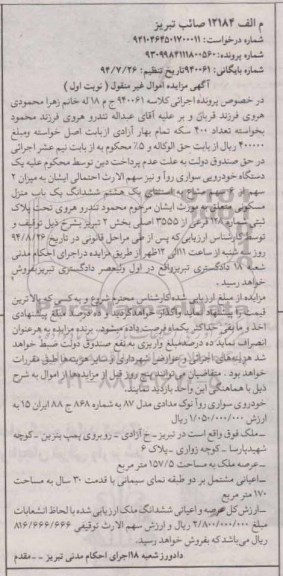 م الف ۱۲۱۸۴ صائب تبریز
شماره درخواست: ۹۲۱۰۴۶۴۵۰۱۷۰۰۰۱۱
شماره پرونده: ۹۳۰۹۹۸۴۱۱۱۸۰۰۵۶۰
شماره بایگانی: ۹۴۰۰۶۱ تاریخ تنظیم: ۹۴/۷/۲۶
آگهی مزایده اموال غیر منقول ( نوبت اول )
در خصوص پرونده اجرائی کلاسه ۹۴۰۰۶۱ ج م ۱۸ له خانم زهرا محمودی
هروی فرزند قربان و بر علیه آقای عبداله تندرو هروی فرزند محمود
بخواسته تعداد ۴۰۰ سکه تمام بهار آزادی ازبابت اصل خواسته ومبلغ
۴۰۰۰۰۰ ریال از بابت حق الوکاله و ۵٪ محکوم به از بابت نیم عشر اجرائی
در حق صندوق دولت به علت عدم پرداخت دین توسط محکوم علیه یک
دستگاه خودرویی سواری روآ و نیز سهم الارث احتمالی ایشان به میزان ۲
سهم از سهم مشاع به استثنای یک هشتم ششدانگ یک باب منزل
مسکونی متعلق به مورث ایشان مرحوم محمود تندرو هروی تحت پلاک
ثبتی بشماره ۱۲۸ فرعی از ۳۵۵۵ اصلی بخش ۲ تبریز بشرح ذیل توقیف و
توسط کارشناس ارزیابی که پس از طی مراحل قانونی در تاریخ ۹۴/۸/۲۶
روز سه شنبه از ساعت ۱۱ الی ۱۲ ظهر از طریق مزایده دراجرای احکام مدنی
شعبه ۱۸ دادگستری تبریز واقع در اول ولیعصر دادگستری تبریز بفروش
خواهد رسید .
مزایده از مبلغ ارزیابی شده کارشناس محترم شروع و به کسی که بالاترین
قیمت را پیشنهاد نماید واگذار خواهد گردید و ده درصد مبلغ پیشنهادی
اخذ و مابقی حداکثر یکماه فرصت داده میشود. برنده مزایده به هرعنوان
انصراف نماید ده درصد مبلغ واریزی به نفع صندوق دولت ضبط خواهد
شد هزینه های اجرائی و عوارض شهرداری و سایر هزینه ها طبق مقررات
خواهد بود . متقاضیان می توانند پنج روز قبل از مزایده ها از اموال به شرح
ذیل با هماهنگی این واحد بازدید نمایند.
خودروی سواری روآ نوک مدادی مدل ۸۷ به شماره ۸۶۸ ج ۸۸ ایران ۱۵ به
ارزش ۱/۰۵۰/۰۰۰/۰۰۰ ریال
_ ملک فوق واقع است در تبریز_ خ آزادی _ روبروی پمپ بنزین _ کوچه
شهید پارسا _ کوچه زواری _ پلاک ۶
_ عرصه ملک به مساحت ۱۵۷/۵ متر مربع
_ اعیانی مشتمل بر دو طبقه نمای سیمانی با قدمت ۳۰ سال به مساحت
۱۷۰ متر مربع
_ ارزش کل عرصه و اعیانی ششدانگ ملک ارزیابی شده با لحاظ انشعابات
مبلغ ۲/۸۰۰/۰۰۰/۰۰۰ ریال و ارزش سهم الارث توقیفی ۸۱۶/۶۶۶/۶۶۶
ریال می باشد که بفروش خواهد رسید.
دادورز شعبه ۱۸ اجرای احکام مدنی تبریز _ _ مقدم